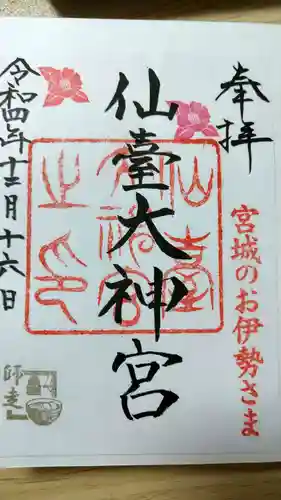 奉拝
宮城のお伊勢さま
仙臺大神宮
令和四年十二月十六日
師走